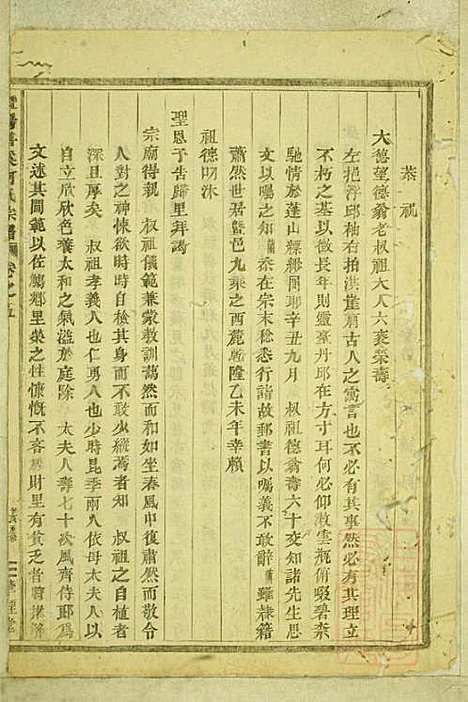 恭祝
大德望德翁老叔祖大人六袠榮壽
左挹浮邱袖右拍洪崖肩古人之寓言也不必有其事然必有其理立
不朽之基以徵長年則靈臺丹邱在方寸耳何必仰漱雲瓶俯啜碧柰
馳情於蓬山縹緲間耶辛丑九月 叔祖德翁壽六十交知諸先生思
文以囑之 忝在宗末稔悉行諸故郵書以囑義不敢辭 雖隸籍
蕭然世居暨邑九萊之西麓乾隆乙未年幸賴
祖德叨沐
聖恩予告歸里拜謁
宗廟得親 叔祖儀範兼蒙教訓藹然而如坐春風中復肅然而敬令
人對之神悚欲時時自檢其身而不敢少縱焉者知 叔祖之自植者
深且厚矣 叔祖孝義人也仁勇人也少時昆季兩人依母太夫人以
自立欣欣色養太和之氣溢於庭除 太夫人壽七十次風齊侍郎為
文述其閫範以佐觴鄉里榮之性慷慨不吝財里有貧乏者
宗譜 卷之五